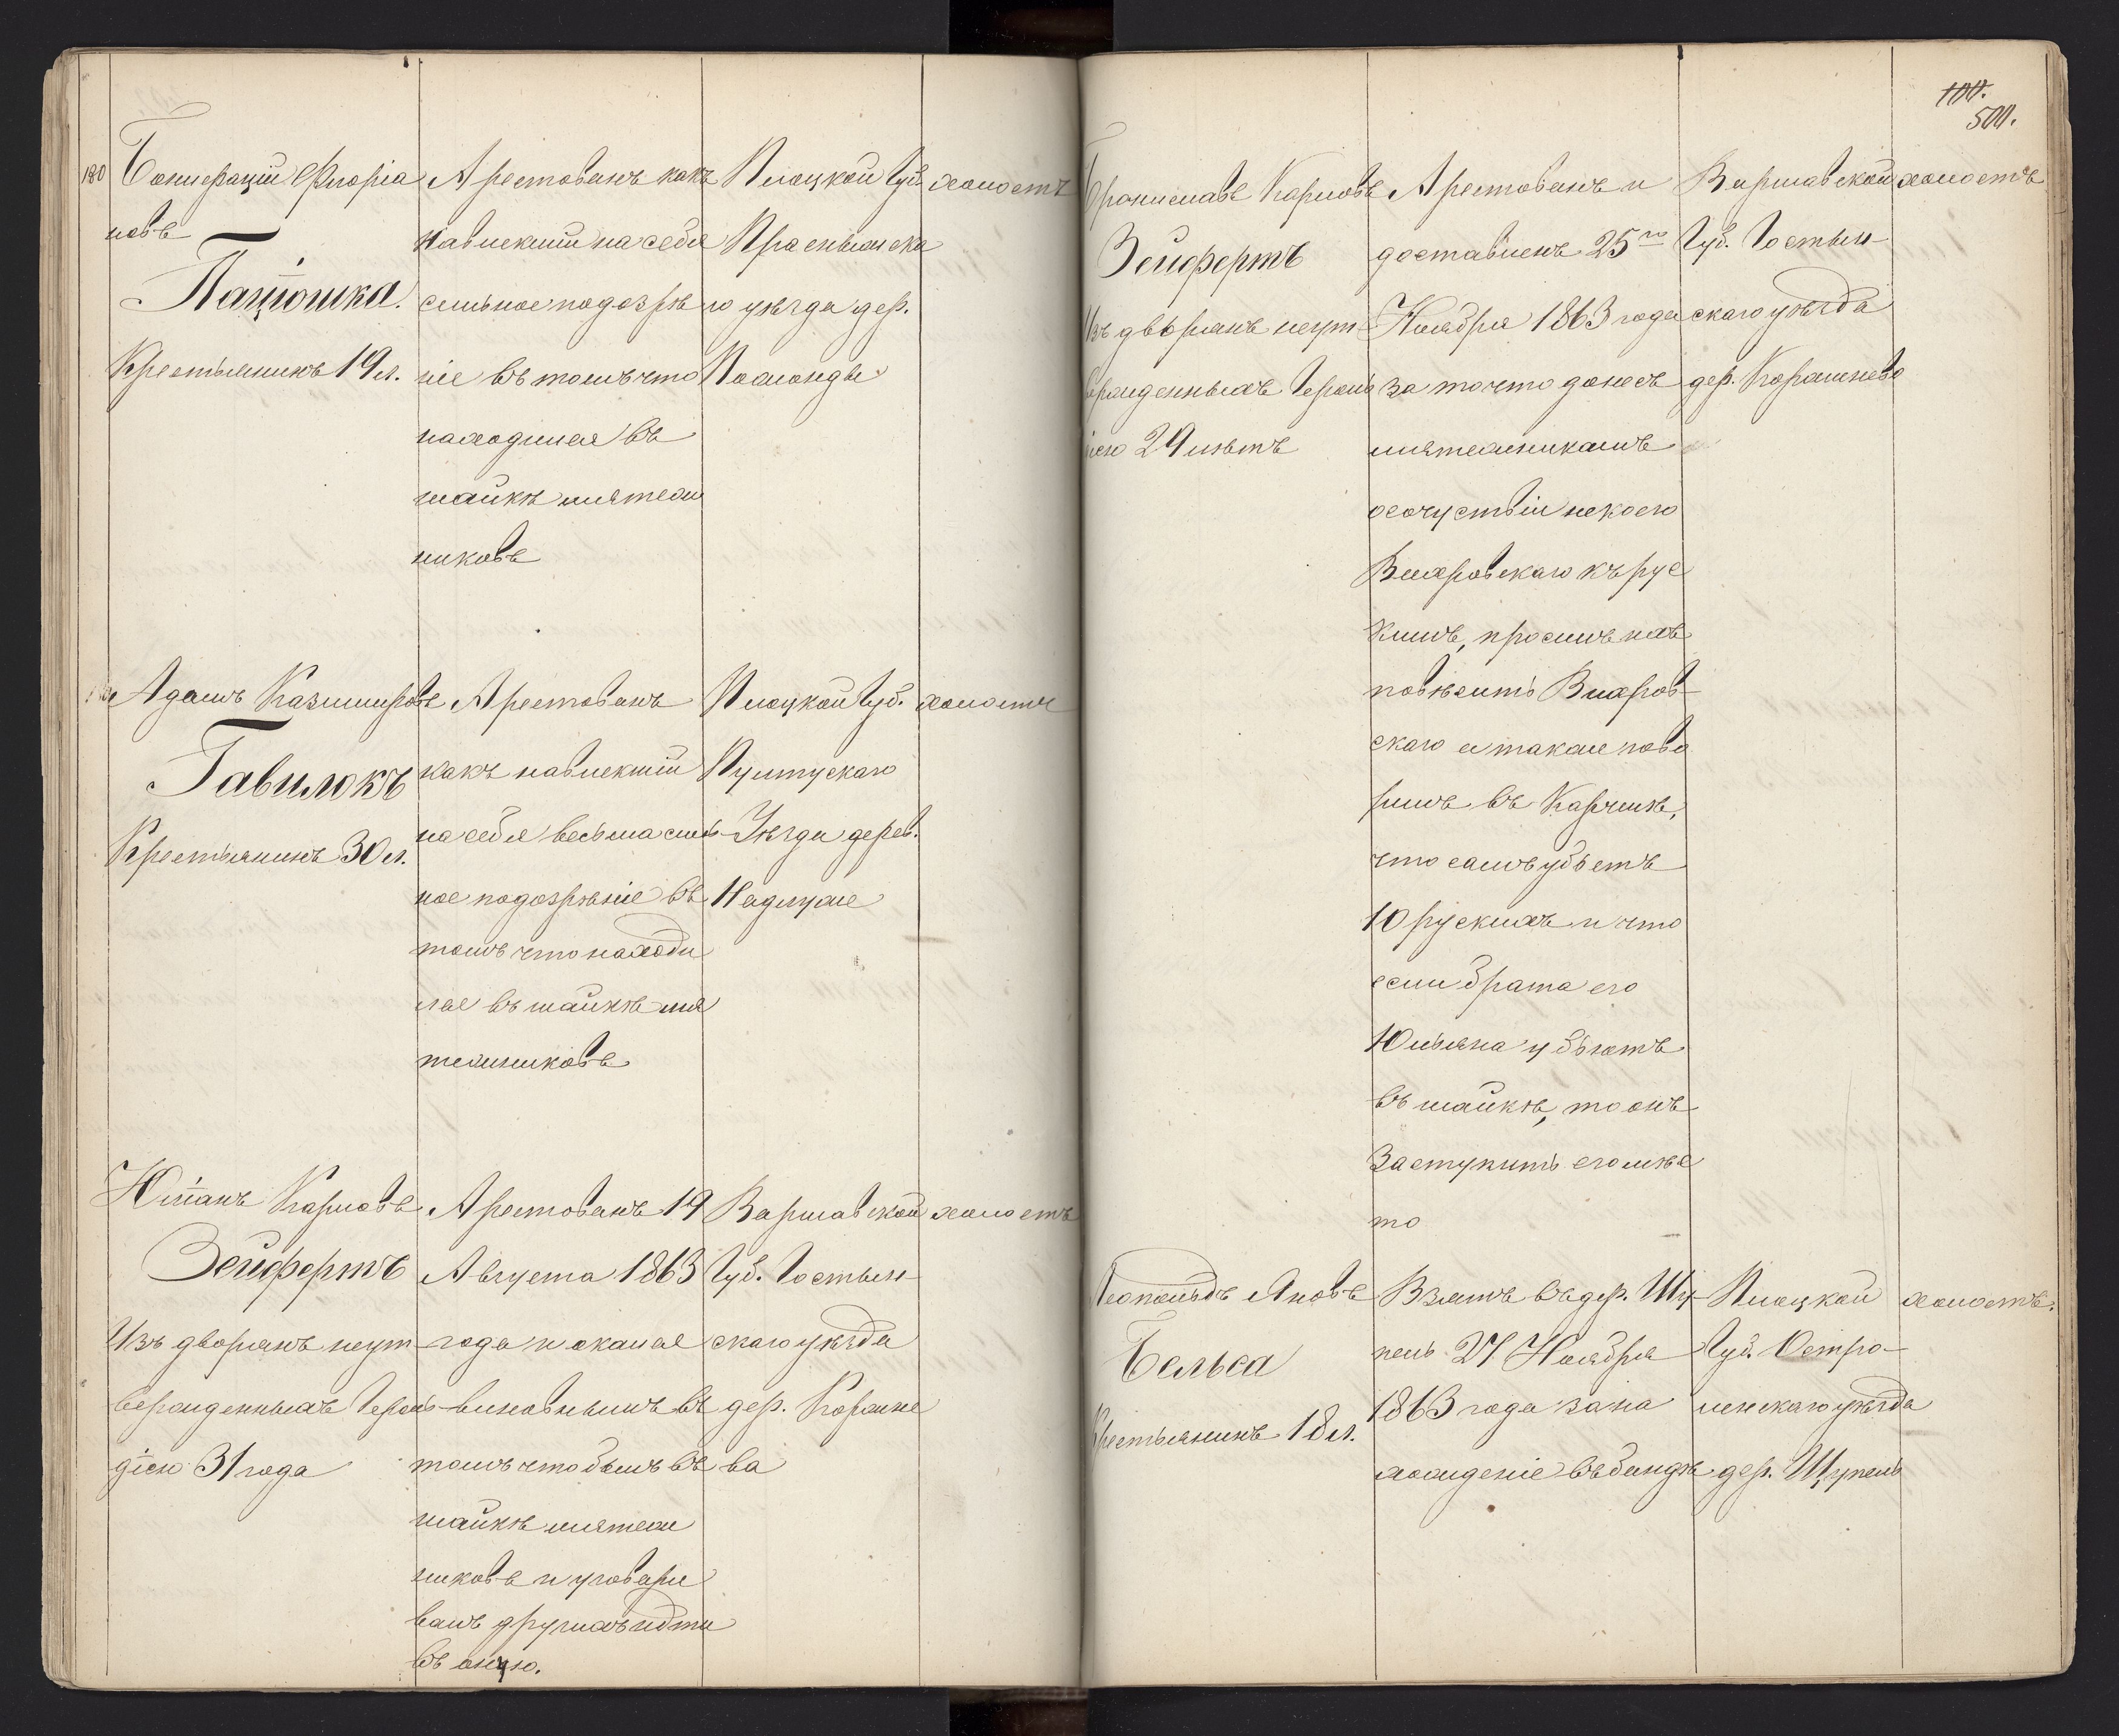 180
Бонифацiй Флорiа
новъ
Пацiошка.
Крестьянинъ 19 л.
Арестованъ какъ
навлекшiй на себя
сильное подозрѣ
нiе въ томъ что
находился въ
шайкѣ мятеж
никовъ
Плоцкой Губ.
Праснышска
го уѣзда дер.
холостъ
Адамъ Казимировъ
Гавилокъ
Крестьянинъ 30 л.
Арестованъ
какъ навлекшiй
на себя весьма силь-
ное подозрѣнiе въ
томъ что находи
лся въ шайкѣ мя
тежниковъ
Плоцкой Губ.
Пултускаго
Уѣзда дерев.
Надлуже
холостъ
Юлiанъ Карловъ
Зейфертъ
Изъ дворянъ неут
вержденныхъ Героль
дiею 31 года
Арестованъ 19
Августа 1863
года и оказался
виновнымъ въ
томъ что былъ въ
шайкѣ мятеж
никовъ и уговари
валъ другихъ идти
въ оную.
Варшавской
Губ. Гостын-
скаго уѣзда
дер. Коржне
ва
холостъ
100.
500.
Брониславъ Карловъ
Зейфертъ
Изъ дворянъ неут
вержденныхъ Героль
дiею 29 лѣтъ
Арестованъ и
доставленъ 25го
Ноября 1863 года
за то что донесъ
мятежникамъ
осочуствiи некоего
Вихровскаго къ рус
кимъ, просилъ ихъ
повѣсить Вихров-
скаго а также гово
рилъ въ Карчмѣ,
что самъ убьетъ
10 рускихъ и что
если брата его
Юльяна убьютъ
въ шайкѣ, то онъ
заступитъ его мѣс
то
Варшавской
Губ. Гостын-
скаго уѣзда
дер.
холостъ
Леопольдъ Яновъ
Бельса
Крестьянинъ 18 л.
Взятъ въ дер. Щу-
пель 27 Ноября
1863 года за на
хожденiе въ бандѣ
Плоцкой
Губ. Остро-
ленскаго уѣзда
дер. Щупель
холостъ.